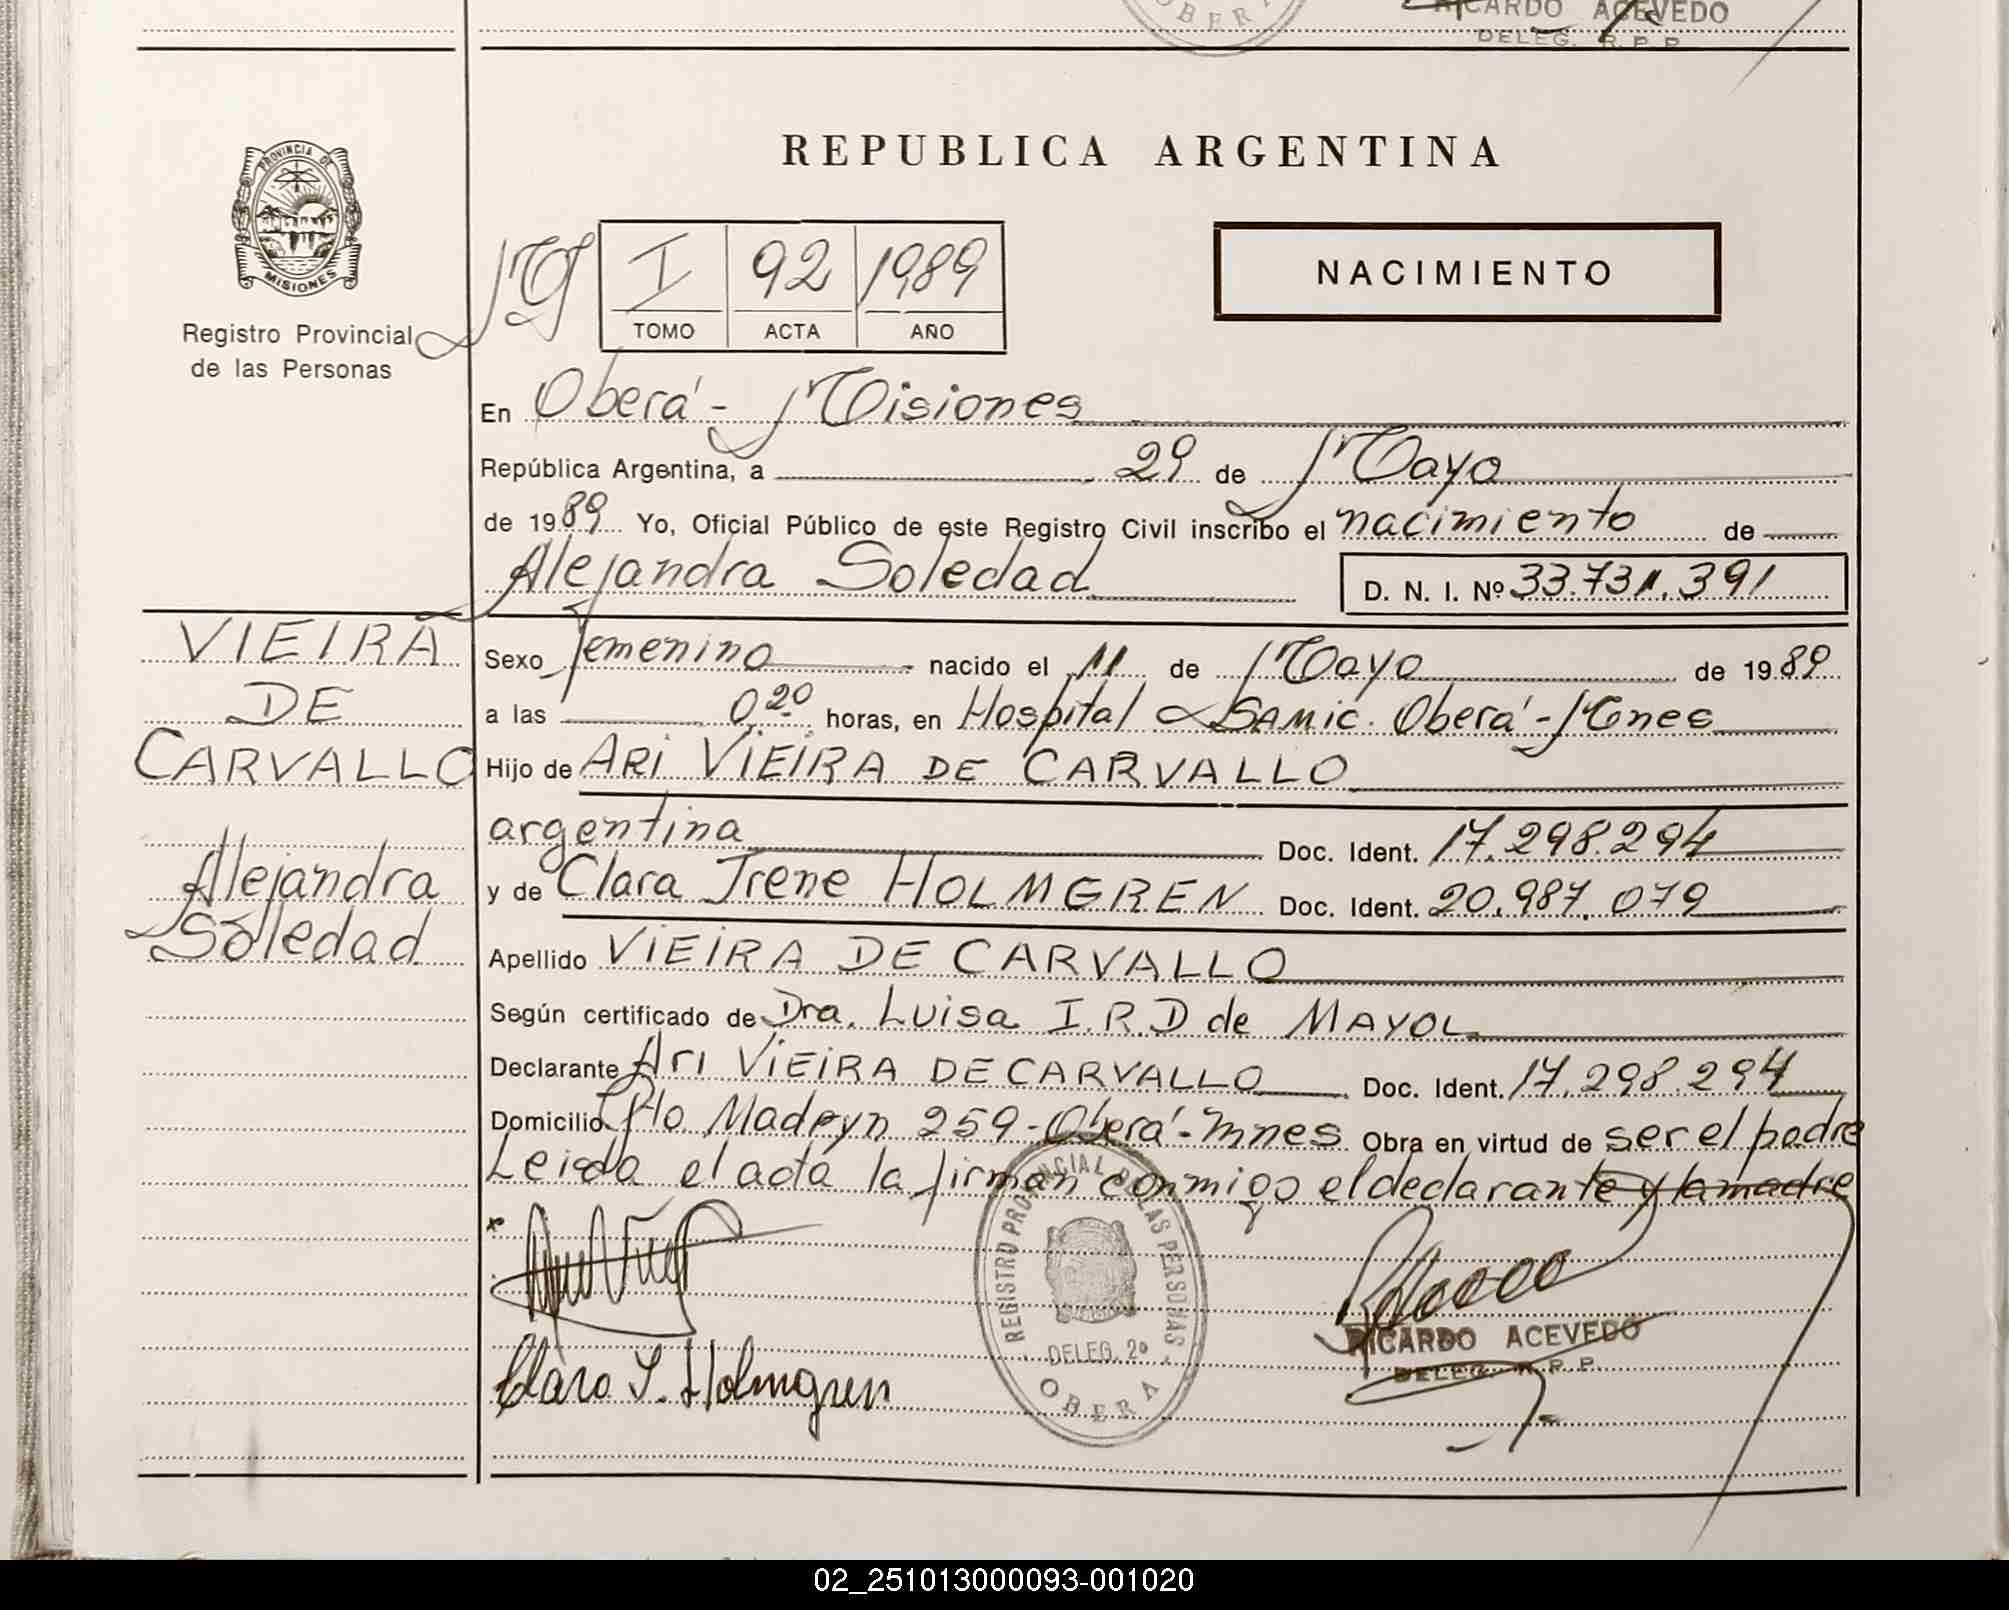 OBERA
RICARDO ACEVEDO
DELEG. R.P.P.
REPUBLICA ARGENTINA
PROVINCIA DE
MISIONES
Registro Provincial
de las Personas
M
I 92 1989
TOMO ACTA AÑO
NACIMIENTO
En Oberá - Misiones
República Argentina, a 29 de Mayo
de 1989 Yo, Oficial Público de este Registro Civil inscribo el nacimiento de
Alejandra Soledad D. N. I. Nº 33.731.391
VIEIRA
DE
CARVALLO
Alejandra
Soledad
Sexo femenino nacido el 11 de Mayo de 1989
a las 0,20 horas, en Hospital SAMIC. Oberá - Mnes
Hijo de ARI VIEIRA DE CARVALLO
argentina Doc. Ident. 17.298.294
y de Clara Irene HOLMGREN Doc. Ident. 20.987.079
Apellido VIEIRA DE CARVALLO
Según certificado de Dra. Luisa I.R.D de MAYOL
Declarante Ari VIEIRA DE CARVALLO Doc. Ident. 17.298.294
Domicilio Pto Madryn 259 - Oberá - Mnes Obra en virtud de ser el padre
Leida el acta la firman conmigo el declarante y la madre
Clara I. Holmgren
REGISTRO PROVINCIAL DE LAS PERSONAS
DELEG. 2º
OBERA
RICARDO ACEVEDO
DELEG. R.P.P.
02_251013000093-001020